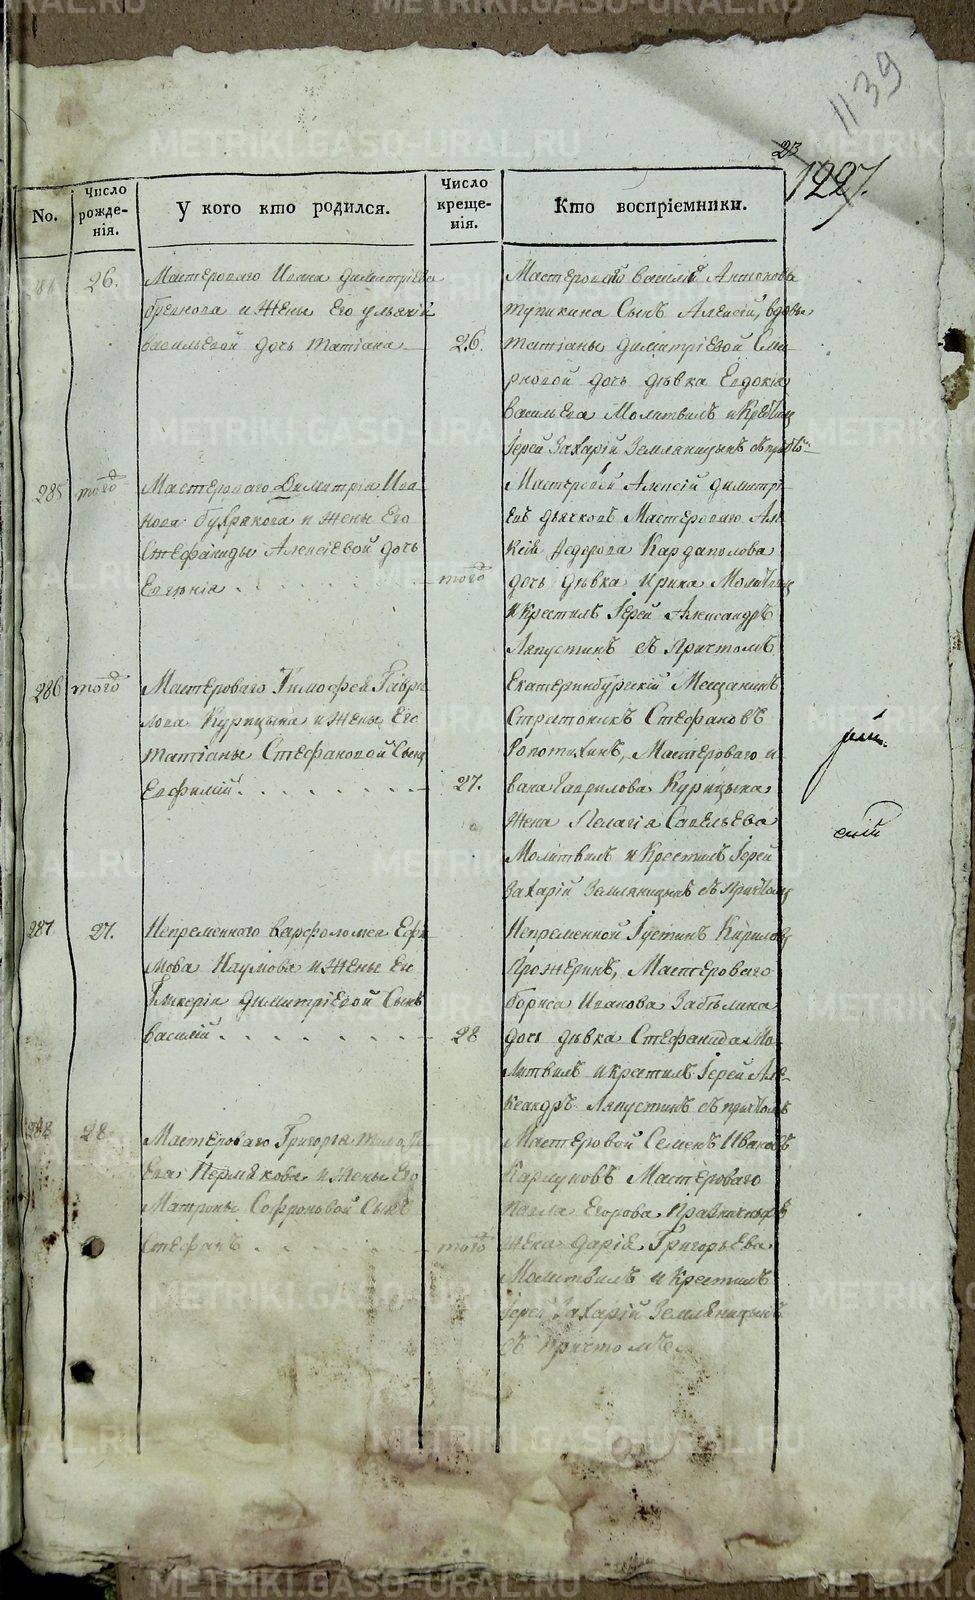 1139
23
1227.
No.
Число рожде-нія.
У кого кто родился.
Число креще-нія.
Кто воспріемники.
26.
Мастероваго Ивана Димитріева
и жены его Ульяніи
Васильевой дочь Татіана
26.
Мастеровой Василій Антоновъ
Тупикина сынъ Алексій, вдовы
Татіаны Димитріевой Сми-
рновой дочь дѣвка Евдокія
Васильева Молитвилъ и
Іерей Захарій Земляницынъ
285
того
Мастероваго Димитрія Ива-
нова Бухрякова и жены его
Стефаниды Алексіевой дочь
Евгенія
того
Мастеровой Алексій Димитрі-
евъ Дьячковъ Мастероваго Але-
ксія Федорова Кардаполова
дочь дѣвка Ирина
и крестилъ Іерей Александръ
Ляпустинъ съ причтомъ
286
того
Мастероваго Тимофея Гаври-
лова Курицына и жены его
Татіаны Стефановой сынъ
Евфимій
27.
Екатеринбургскій Мещанинъ
Стратоникъ Стефановъ
Мастероваго И-
вана Гаврилова Курицына
жена Пелагія Савельева
Молитвилъ и крестилъ Іерей
Захарій Земляницынъ съ причтомъ
287
27.
Непременнаго Варфоломея Ефи-
мова Наумова и жены его
Гликеріи Димитріевой сынъ
Василій
28
Непременной Іустинъ Кириловъ
Прожеринъ, Мастероваго
Бориса Иванова Забѣлина
дочь дѣвка Стефанида Мо-
литвилъ и крестилъ Іерей Але-
ксандръ Ляпустинъ съ причтомъ
288
28
Мастероваго Григорія
Пермякова и жены его
Матроны Софроновой сынъ
Стефанъ
того
Мастеровой Семенъ Ивановъ
Карпуновъ Мастероваго
Павла Егорова
жена Дарія Григорьева
Молитвилъ и крестилъ
Іерей Захарій Земляницынъ
съ причтомъ
METRIKI.GASO-URAL.RU